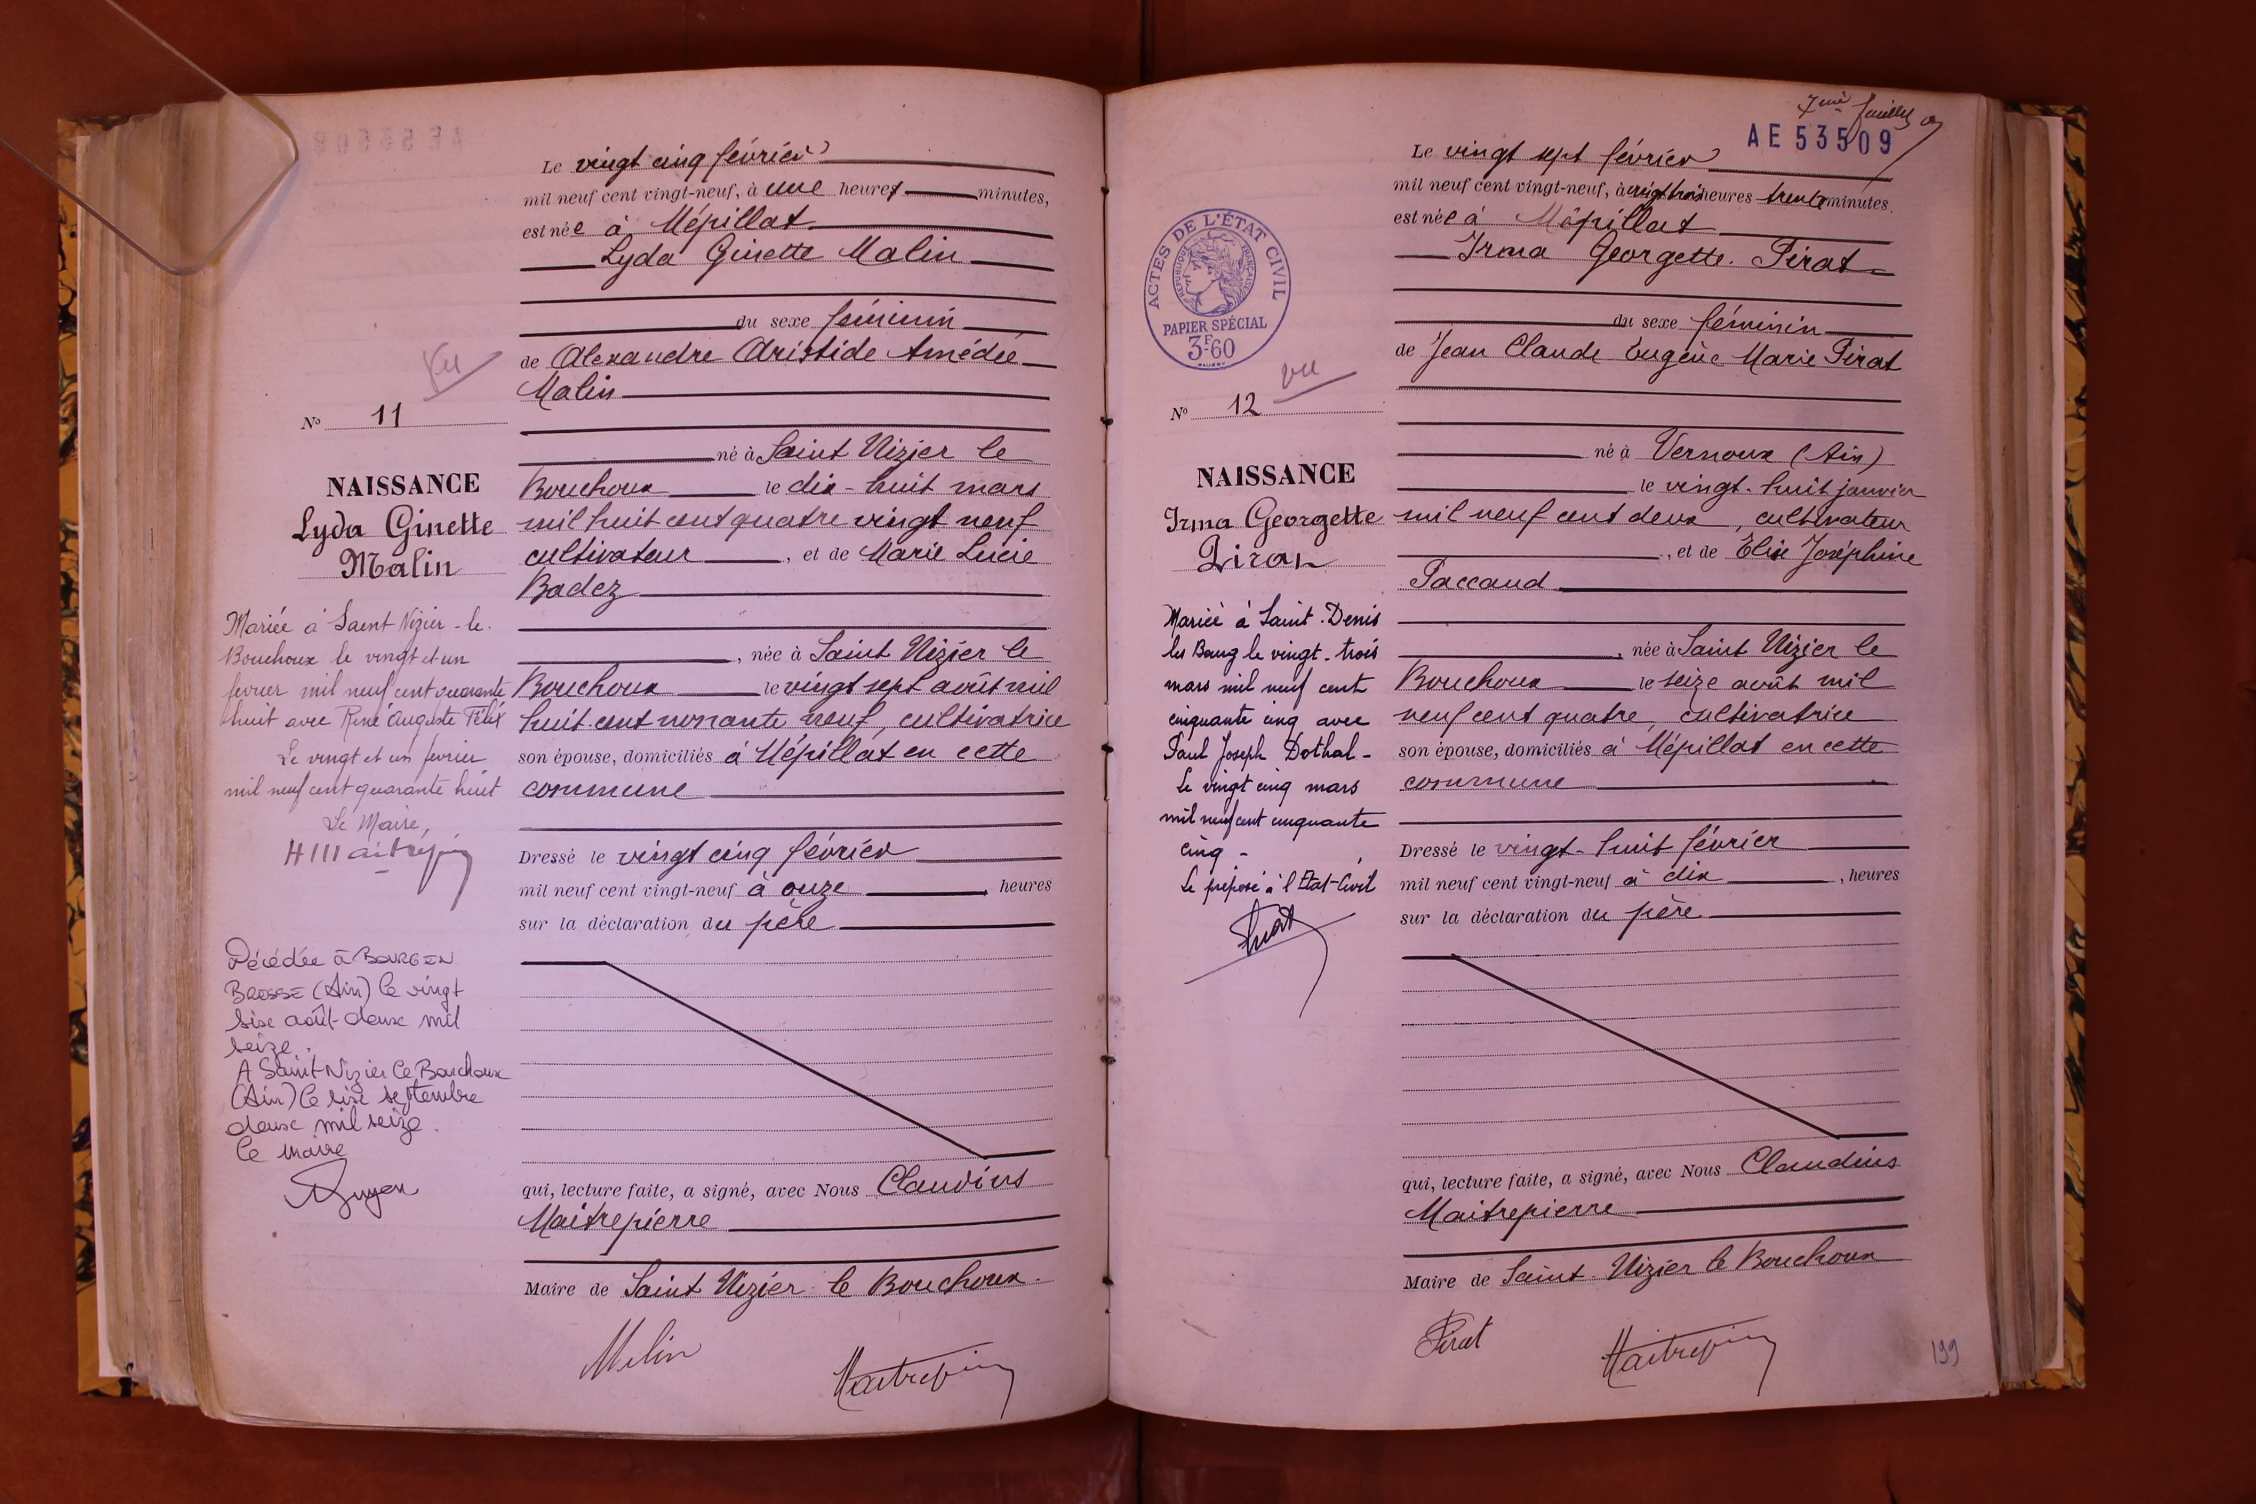 Le vingt cinq février
mil neuf cent vingt-neuf, à une heures minutes,
est née à Mépillat
Lyda Ginette Malin
du sexe féminin
de Alexandre Aristide Amédée
Malin
né à Saint Nizier le
Bouchoux le dix-huit mars
mil huit cent quatre vingt neuf
cultivateur, et de Marie Lucie
Badez
, née à Saint Nizier le
Bouchoux le vingt sept août mil
huit cent nonante neuf, cultivatrice
son épouse, domiciliés à Mépillat en cette
commune
Dressé le vingt cinq février
mil neuf cent vingt-neuf à onze, heures
sur la déclaration du père
qui, lecture faite, a signé, avec Nous Claudius
Maitrepierre
Maire de Saint Nizier le Bouchoux.
Malin
Maitrepierre
vu
No 11
NAISSANCE
Lyda Ginette
Malin
Mariée à Saint Nizier-le-
Bouchoux le vingt et un
février mil neuf cent quarante
huit avec René Auguste Félix
Le vingt et un février
mil neuf cent quarante huit
Le Maire,
Maitrepierre
Décédée à BOURG EN
BRESSE (Ain) le vingt
six août deux mil
seize.
A Saint-Nizier le Bouchoux
(Ain) le six septembre
deux mil seize.
Le maire
7me feuillet
AE 53509
Le vingt sept février
mil neuf cent vingt-neuf, à vingt trois heures trente minutes.
est née à Mépillat
Irma Georgette Pirat
du sexe féminin
de Jean Claude Eugène Marie Pirat
né à Vernoux (Ain)
le vingt-huit janvier
mil neuf cent deux, cultivateur
, et de Elise Joséphine
Paccaud
, née à Saint Nizier le
Bouchoux le seize août mil
neuf cent quatre, cultivatrice
son épouse, domiciliés à Mépillat en cette
commune
Dressé le vingt-huit février
mil neuf cent vingt-neuf à dix, heures
sur la déclaration du père
qui, lecture faite, a signé, avec Nous Claudius
Maitrepierre
Maire de Saint Nizier le Bouchoux
Pirat
Maitrepierre
199
ACTES DE L'ÉTAT CIVIL
RÉPUBLIQUE FRANÇAISE
PAPIER SPÉCIAL
3F60
vu
No 12
NAISSANCE
Irma Georgette
Pirat
Mariée à Saint-Denis
les Bourg le vingt-trois
mars mil neuf cent
cinquante cinq avec
Paul Joseph Dothal-
Le vingt cinq mars
mil neuf cent cinquante
cinq-
Le préposé à l'Etat-Civil